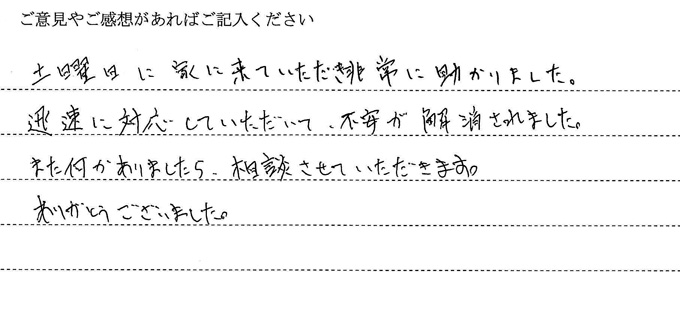 ご意見やご感想があればご記入ください
土曜日に家に来ていただき非常に助かりました。
迅速に対応していただいて、不安が解消されました。
また何かありましたら、相談させていただきます。
ありがとうございました。